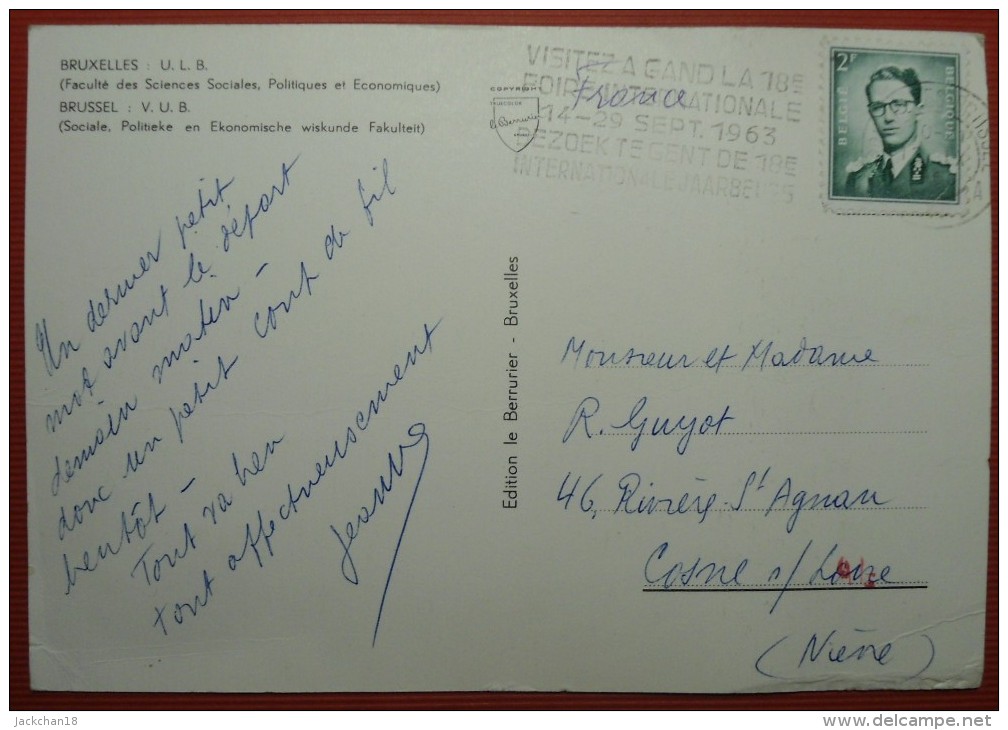 BRUXELLES : U. L. B.
(Faculté des Sciences Sociales, Politiques et Economiques)
BRUSSEL : V. U. B.
(Sociale, Politieke en Ekonomische wiskunde Fakulteit)
Un dernier petit
mot avant le départ
demain matin -
donc un petit coup de fil
bientôt -
Tout va bien
tout affectueusement
Jeanne
COPYRIGHT
le Berrurier
VISITEZ A GAND LA 18E
FOIRE INTERNATIONALE
14-29 SEPT. 1963
BEZOEK TE GENT DE 18E
INTERNATIONALE JAARBEURS
France
2F
BELGIË
BELGIQUE
Edition le Berrurier - Bruxelles
Monsieur et Madame
R. Guyot
46, Rivière St Agnan
Cosne s/ Loire
(Nièvre)
Jackchan18
delcampe.net